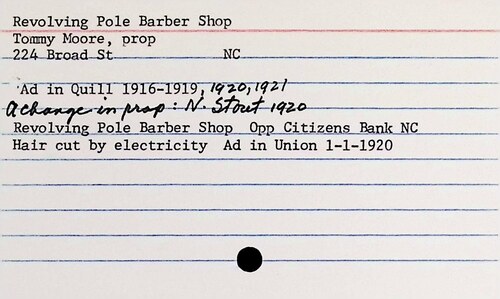 Revolving Pole Barber Shop
Tommy Moore, prop
224 Broad St NC
Ad in Quill 1916-1919, 1920, 1921
A change in prop: N. Stout 1920
Revolving Pole Barber Shop Opp Citizens Bank NC
Hair cut by electricity Ad in Union 1-1-1920